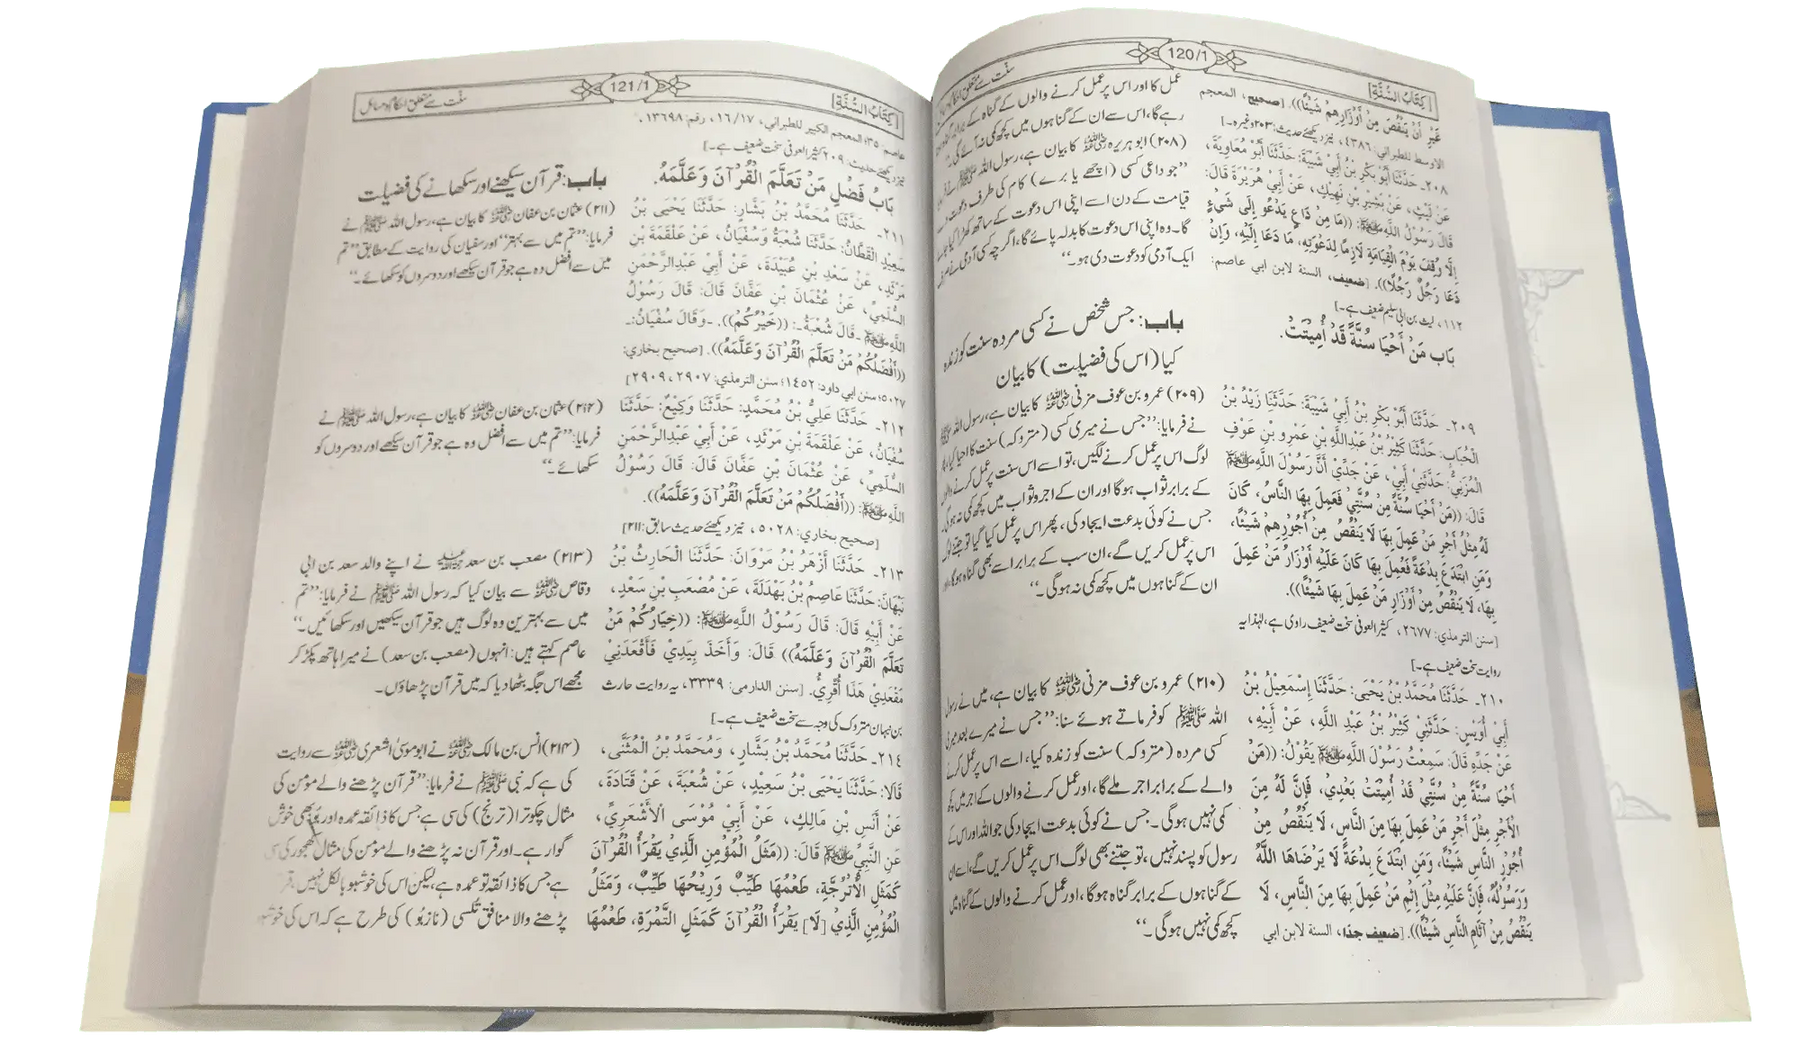 [كِتَابُ السُّنَّةِ]
120/1
غَيْرِ أَنْ يَنْقُصَ مِنْ أَوْزَارِهِمْ شَيْئًا)). [صحيح، المعجم
الاوسط للطبراني: ٤٣٨٦، نیز دیکھئے حدیث: ۲۰۳ وغیرہ۔]
٢٠٨۔ حَدَّثَنَا أَبُو بَكْرِ بْنُ أَبِي شَيْبَةَ: حَدَّثَنَا أَبُو مُعَاوِيَةَ،
عَنْ لَيْثٍ، عَنْ بَشِيرِ بْنِ نَهِيكٍ، عَنْ أَبِي هُرَيْرَةَ قَالَ:
قَالَ رَسُولُ اللَّهِ ﷺ: ((مَا مِنْ دَاعٍ يَدْعُو إِلَى شَيْءٍ
إِلَّا وُقِفَ يَوْمَ الْقِيَامَةِ لَازِمًا لِدَعْوَتِهِ، مَا دَعَا إِلَيْهِ، وَإِنْ
دَعَا رَجُلٌ رَجُلًا)). [ضعيف، السنة لابن ابي عاصم:
١١٢، لیث بن ابی سلیم ضعیف ہے۔]
بَاب مَنْ أَحْيَا سُنَّةً قَدْ أُمِيتَتْ.
٢٠٩۔ حَدَّثَنَا أَبُو بَكْرِ بْنُ أَبِي شَيْبَةَ: حَدَّثَنَا زَيْدُ بْنُ
الْحُبَابِ: حَدَّثَنَا كَثِيرُ بْنُ عَبْدِاللَّهِ بْنِ عَمْرِو بْنِ عَوْفٍ
الْمُزَنِيُّ: حَدَّثَنِي أَبِي، عَنْ جَدِّي أَنَّ رَسُولَ اللَّهِ ﷺ
قَالَ: ((مَنْ أَحْيَا سُنَّةً مِنْ سُنَّتِي فَعَمِلَ بِهَا النَّاسُ، كَانَ
لَهُ مِثْلُ أَجْرِ مَنْ عَمِلَ بِهَا لَا يَنْقُصُ مِنْ أُجُورِهِمْ شَيْئًا،
وَمَنِ ابْتَدَعَ بِدْعَةً فَعُمِلَ بِهَا كَانَ عَلَيْهِ أَوْزَارُ مَنْ عَمِلَ
بِهَا، لَا يَنْقُصُ مِنْ أَوْزَارِ مَنْ عَمِلَ بِهَا شَيْئًا)).
[سنن الترمذي: ٢٦٧٧، کثیر العوفی سخت ضعیف راوی ہے، لہٰذا یہ
روایت سخت ضعیف ہے۔]
٢١٠۔ حَدَّثَنَا مُحَمَّدُ بْنُ يَحْيَى: حَدَّثَنَا إِسْمَعِيلُ بْنُ
أَبِي أُوَيْسٍ: حَدَّثَنِي كَثِيرُ بْنُ عَبْدِ اللَّهِ، عَنْ أَبِيهِ،
عَنْ جَدِّهِ قَالَ: سَمِعْتُ رَسُولَ اللَّهِ ﷺ يَقُولُ: ((مَنْ
أَحْيَا سُنَّةً مِنْ سُنَّتِي قَدْ أُمِيتَتْ بَعْدِي، فَإِنَّ لَهُ مِنَ
الْأَجْرِ مِثْلَ أَجْرِ مَنْ عَمِلَ بِهَا مِنَ النَّاسِ، لَا يَنْقُصُ مِنْ
أُجُورِ النَّاسِ شَيْئًا، وَمَنِ ابْتَدَعَ بِدْعَةً لَا يَرْضَاهَا اللَّهُ
وَرَسُولُهُ، فَإِنَّ عَلَيْهِ مِثْلَ إِثْمِ مَنْ عَمِلَ بِهَا مِنَ النَّاسِ، لَا
يَنْقُصُ مِنْ آثَامِ النَّاسِ شَيْئًا)). [ضعيف جدا، السنة لابن ابي
عمل کا اور اس پر عمل کرنے والوں کے گناہ کے
رہے گا، اس سے ان کے گناہوں میں کچھ کمی نہ آئے گی۔"
(۲۰۸) ابو ہریرہ ؓ کا بیان ہے، رسول اللہ ﷺ نے
"جو داعی کسی (اچھے یا برے) کام کی طرف دعوت
قیامت کے دن اسے اپنی اس دعوت کے ساتھ کھڑا کیا
گا۔ وہ اپنی اس دعوت کا بدلہ پائے گا، اگرچہ کسی آدمی نے
ایک آدمی کو دعوت دی ہو۔"
باب: جس شخص نے کسی مردہ سنت کو زندہ
کیا (اس کی فضیلت) کا بیان
(۲۰۹) عمرو بن عوف مزنی ؓ کا بیان ہے، رسول اللہ
نے فرمایا: "جس نے میری کسی (متروکہ) سنت کا احیا کیا،
لوگ اس پر عمل کرنے لگیں، تو اسے اس سنت پر عمل کرنے
کے برابر ثواب ہوگا اور ان کے اجر و ثواب میں کچھ کمی نہ ہوگی۔
جس نے کوئی بدعت ایجاد کی، پھر اس پر عمل کیا گیا تو جتنے لوگ
اس پر عمل کریں گے، ان سب کے برابر اسے بھی گناہ ہوگا
ان کے گناہوں میں کچھ کمی نہ ہوگی۔"
(۲۱۰) عمرو بن عوف مزنی ؓ کا بیان ہے، میں نے رسول
اللہ ﷺ کو فرماتے ہوئے سنا: "جس نے میرے بعد میری
کسی مردہ (متروکہ) سنت کو زندہ کیا، اسے اس پر عمل کرنے
والے کے برابر اجر ملے گا، اور عمل کرنے والوں کے اجر میں کچھ
کمی نہیں ہوگی۔ جس نے کوئی بدعت ایجاد کی جو اللہ اور اس کے
رسول کو پسند نہیں، تو جتنے بھی لوگ اس پر عمل کریں گے، اسے ان
کے گناہوں کے برابر گناہ ہوگا، اور عمل کرنے والوں کے گناہ میں
کچھ کمی نہیں ہوگی۔"
[كِتَابُ السُّنَّةِ]
121/1
سنت سے متعلق احکام و مسائل
عاصم: ٣٥؛ المعجم الكبير للطبراني، ١٦/١٧، رقم: ١٣٦٩٨۔
نیز دیکھئے حدیث: ۲۰۹ کثیر العوفی سخت ضعیف ہے۔]
بَابُ فَضْلِ مَنْ تَعَلَّمَ الْقُرْآنَ وَعَلَّمَهُ.
٢١١۔ حَدَّثَنَا مُحَمَّدُ بْنُ بَشَّارٍ: حَدَّثَنَا يَحْيَى بْنُ
سَعِيدٍ الْقَطَّانُ: حَدَّثَنَا شُعْبَةُ وَسُفْيَانُ، عَنْ عَلْقَمَةَ بْنِ
مَرْثَدٍ، عَنْ سَعْدِ بْنِ عُبَيْدَةَ، عَنْ أَبِي عَبْدِالرَّحْمَنِ
السُّلَمِيِّ، عَنْ عُثْمَانَ بْنِ عَفَّانَ قَالَ: قَالَ رَسُولُ
اللَّهِ ﷺ۔ قَالَ شُعْبَةُ: ((خَيْرُكُمْ)). ۔وَقَالَ سُفْيَانُ:۔
((أَفْضَلُكُمْ مَنْ تَعَلَّمَ الْقُرْآنَ وَعَلَّمَهُ)). [صحيح بخاري:
٥٠٢٧؛ سنن ابي داود: ١٤٥٢؛ سنن الترمذي: ٢٩٠٧، ٢٩٠٩]
٢١٢۔ حَدَّثَنَا عَلِيُّ بْنُ مُحَمَّدٍ: حَدَّثَنَا وَكِيعٌ: حَدَّثَنَا
سُفْيَانُ، عَنْ عَلْقَمَةَ بْنِ مَرْثَدٍ، عَنْ أَبِي عَبْدِالرَّحْمَنِ
السُّلَمِيِّ، عَنْ عُثْمَانَ بْنِ عَفَّانَ قَالَ: قَالَ رَسُولُ
اللَّهِ ﷺ: ((أَفْضَلُكُمْ مَنْ تَعَلَّمَ الْقُرْآنَ وَعَلَّمَهُ)).
[صحيح بخاري: ٥٠٢٨، نیز دیکھئے حدیث سابق: ۲۱۱]
٢١٣۔ حَدَّثَنَا أَزْهَرُ بْنُ مَرْوَانَ: حَدَّثَنَا الْحَارِثُ بْنُ
نَبْهَانَ: حَدَّثَنَا عَاصِمُ بْنُ بَهْدَلَةَ، عَنْ مُصْعَبِ بْنِ سَعْدٍ،
عَنْ أَبِيهِ قَالَ: قَالَ رَسُولُ اللَّهِ ﷺ: ((خِيَارُكُمْ مَنْ
تَعَلَّمَ الْقُرْآنَ وَعَلَّمَهُ)) قَالَ: وَأَخَذَ بِيَدِي فَأَقْعَدَنِي
مَقْعَدِي هَذَا أُقْرِئُ. [سنن الدارمی: ٣٣٣٩، یہ روایت حارث
بن نبہان متروک کی وجہ سے سخت ضعیف ہے۔]
٢١٤۔ حَدَّثَنَا مُحَمَّدُ بْنُ بَشَّارٍ، وَمُحَمَّدُ بْنُ الْمُثَنَّى،
قَالَا: حَدَّثَنَا يَحْيَى بْنُ سَعِيدٍ، عَنْ شُعْبَةَ، عَنْ قَتَادَةَ،
عَنْ أَنَسِ بْنِ مَالِكٍ، عَنْ أَبِي مُوسَى الْأَشْعَرِيِّ،
عَنِ النَّبِيِّ ﷺ قَالَ: ((مَثَلُ الْمُؤْمِنِ الَّذِي يَقْرَأُ الْقُرْآنَ
كَمَثَلِ الْأُتْرُجَّةِ، طَعْمُهَا طَيِّبٌ وَرِيحُهَا طَيِّبٌ، وَمَثَلُ
الْمُؤْمِنِ الَّذِي [لَا] يَقْرَأُ الْقُرْآنَ كَمَثَلِ التَّمْرَةِ، طَعْمُهَا
باب: قرآن سیکھنے اور سکھانے کی فضیلت
(۲۱۱) عثمان بن عفان ؓ کا بیان ہے، رسول اللہ ﷺ نے
فرمایا: "تم میں سے بہتر" اور سفیان کی روایت کے مطابق "تم
میں سے افضل وہ ہے جو قرآن سیکھے اور دوسروں کو سکھائے۔"
(۲۱۲) عثمان بن عفان ؓ کا بیان ہے، رسول اللہ ﷺ نے
فرمایا: "تم میں سے افضل وہ ہے جو قرآن سیکھے اور دوسروں کو
سکھائے۔"
(۲۱۳) مصعب بن سعد ؒ نے اپنے والد سعد بن ابی
وقاص ؓ سے بیان کیا کہ رسول اللہ ﷺ نے فرمایا: "تم
میں سے بہترین وہ لوگ ہیں جو قرآن سیکھیں اور سکھائیں۔"
عاصم کہتے ہیں: انہوں (مصعب بن سعد) نے میرا ہاتھ پکڑ کر
مجھے اس جگہ بٹھا دیا کہ میں قرآن پڑھاؤں۔
(۲۱۴) انس بن مالک ؓ نے ابو موسیٰ اشعری ؓ سے روایت
کی ہے کہ نبی ﷺ نے فرمایا: "قرآن پڑھنے والے مومن کی
مثال چکوترا (ترنج) کی سی ہے جس کا ذائقہ عمدہ اور بو بھی خوش
گوار ہے۔ اور قرآن نہ پڑھنے والے مومن کی مثال کھجور کی سی
ہے جس کا ذائقہ تو عمدہ ہے، لیکن اس کی خوشبو بالکل نہیں،
پڑھنے والا منافق تلسی (نازبو) کی طرح ہے کہ اس کی خوشبو